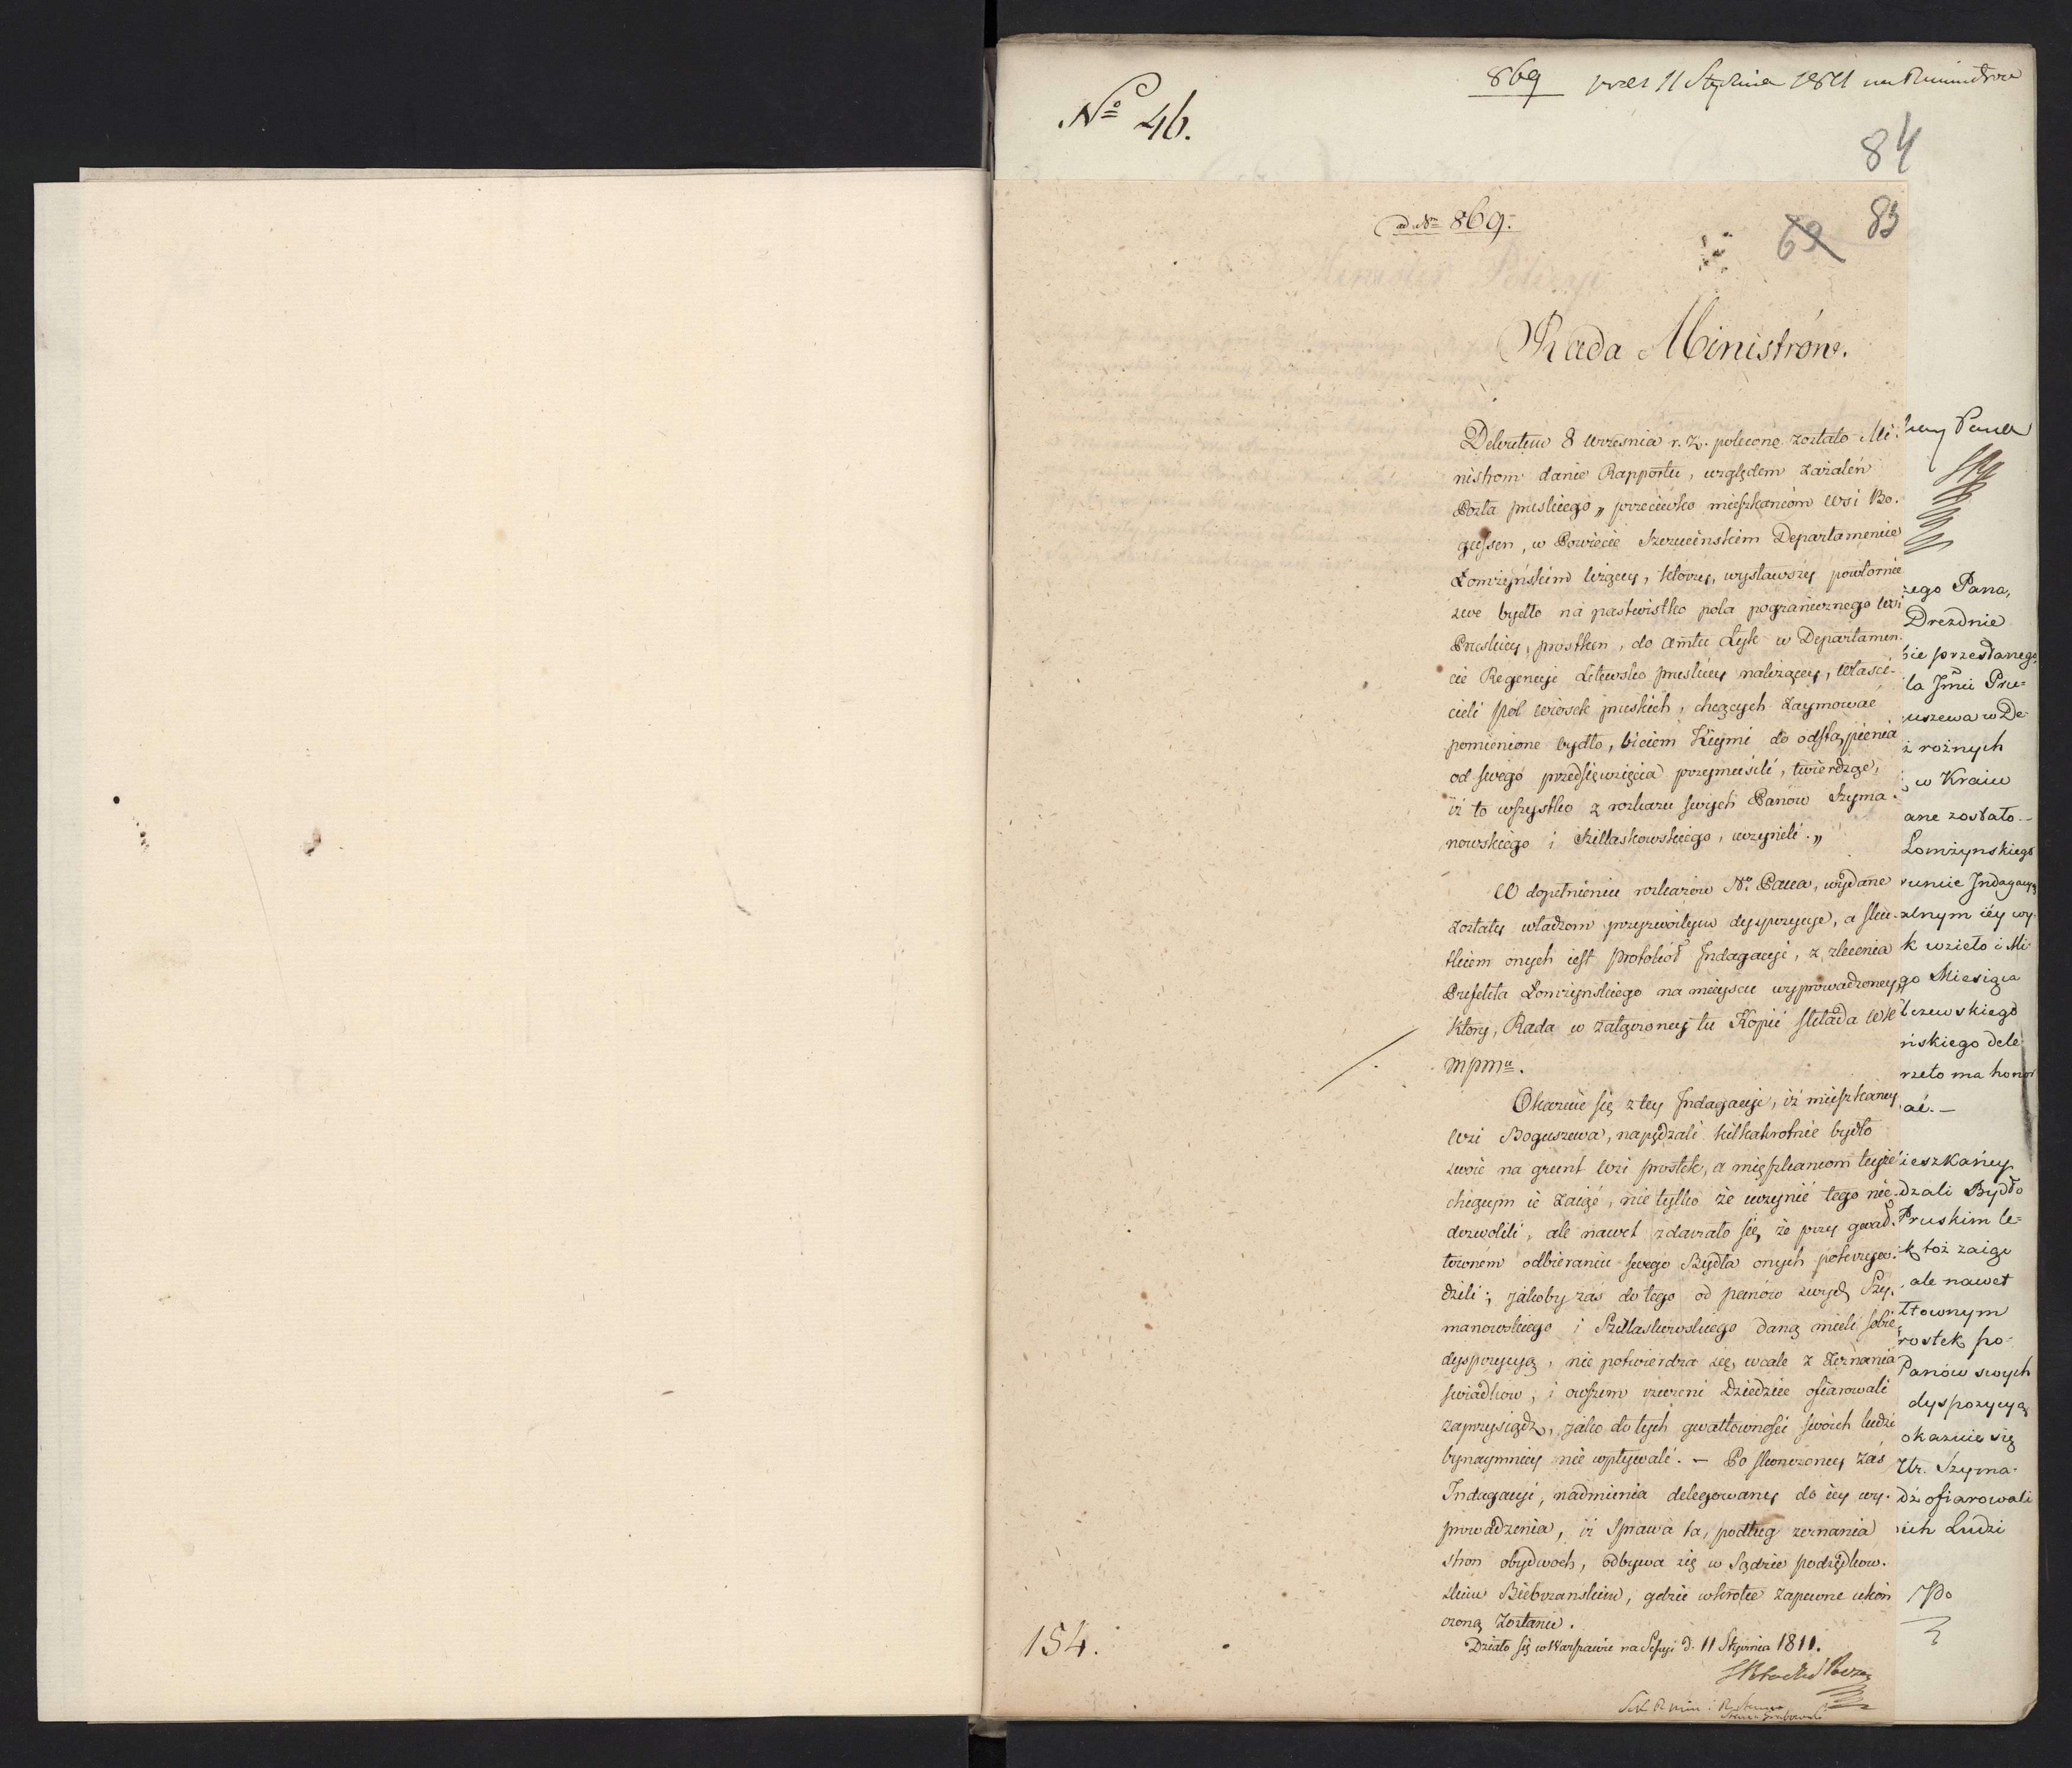 869 11 Stycznia 1811
No 46.
84
ad Nrm 869.
69 83
Rada Ministrów.
Dekretem 8 września r. z. polecone zostało Mi-
nistrom danie Rapportu, względem zażaleń
Posła pruskiego „ przeciwko mieszkańcom wsi Bo-
gussen, w Powiecie Szczucińskim Departamencie
Łomżyńskim leżącey, którzy, wysławszy powtornie
swe bydło na pastwisko pola pogranicznego wsi
Pruskiey, prostken, do Amtu Lyk w Departamen-
cie Regencyi Litewsko pruskiey należącey, Właści-
cieli pol wiosek pruskich, chcących zaymować
pomienione bydło, biciem Kiymi do odstąpienia
od swego przedsięwzięcia przymusili, twierdząc,
iż to wszystko z rozkazu swych Panów Szyma-
nowskiego i Skillaskowskiego, uczynili. „
W dopełnieniu rozkazów No. Pana, wydane
zostały władzom przyzwoitym dyspozycye, a sku-
tkiem onych iest protokół Indagacyi, z zlecenia
Prefekta Łomżyńskiego na mieyscu wyprowadzoney,
ktory, Rada w załączoney tu Kopii składa WK
Mpmu.
Okazuie się z tey Indagacyi, iż mieszkańcy
wsi Boguszewa, napędzali kilkakrotnie bydło
swoie na grunt wsi prostek, a mieszkańcom teyże
chcącym ie zaiąć, nie tylko że uczynić tego nie
dozwolili, ale nawet zdarzało się, że przy gwał-
townem odbieraniu swego Bydła onych pokrzyw-
dzili; jakoby zaś do tego od panów swych Szy-
manowskiego i Szillaskowskiego daną mieli sobie
dyspozycyą, nie potwierdza się wcale z zeznania
swiadkow, i owszem rzeczeni Dziedzice ofiarowali
zaprzysiądz, jako do tych gwałtowności swoich ludzi
bynaymniey nie wpływali. — Po skonczoney zaś
Indagacyi, nadmienia delegowany do iey wy-
prowadzenia, iż Sprawa ta, podług zeznania
stron obydwoch, odbywa się w Sądzie podsędkow-
skim Biebrzanskim, gdzie wkrotce zapewne ukoń
czoną zostanie.
Działo się w Warszawie na Sessyi d. 11 Stycznia 1811.
154.
zego Pana,
Dreznie
bie przesłanego,
la Jmci Pru-
uszewa w De-
ż rożnych
w Kraiu
ane zostało.-
Łomżynskiego
runcie Indagacyą
alnym iéy wy-
k wzieto i Mi-
go Miesiąca
lczewskiego
ńskiego dele-
rzeto ma honor
ać.—
ieszkańcy
dzali Bydło
Pruskim le-
k toż zaigc
, ale nawet
łtownym
rostek po-
Panów swych
dyspozycyą
okazuie się
Ur. Szyma-
dż ofiarowali
ich Ludzi